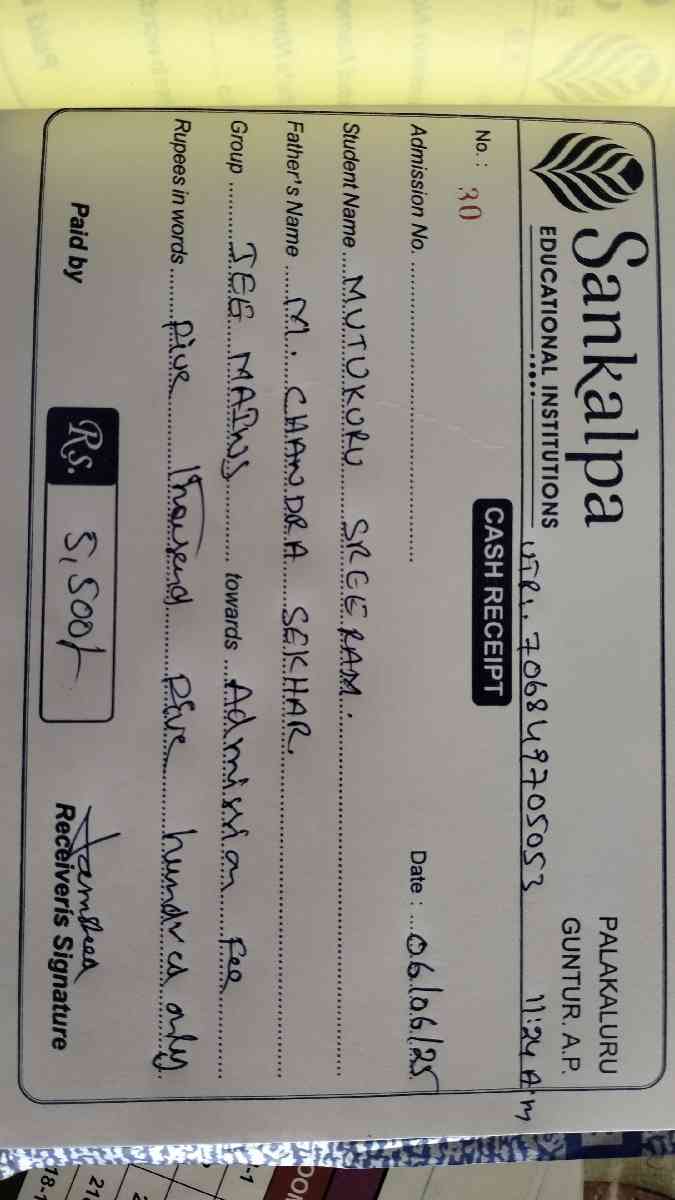 Sankalpa
EDUCATIONAL INSTITUTIONS
PALAKALURU
GUNTUR. A.P.
UTR:. 706849705053 11:24 A.m
No. : 30
CASH RECEIPT
Admission No. Date : 06/06/25
Student Name MUTUKURU SREERAM.
Father's Name M. CHANDRA SEKHAR.
Group JEE MAINS towards Admission fee
Rupees in words five thousand five hundred only
Paid by Rs. 5,500/-
Receiveris Signature